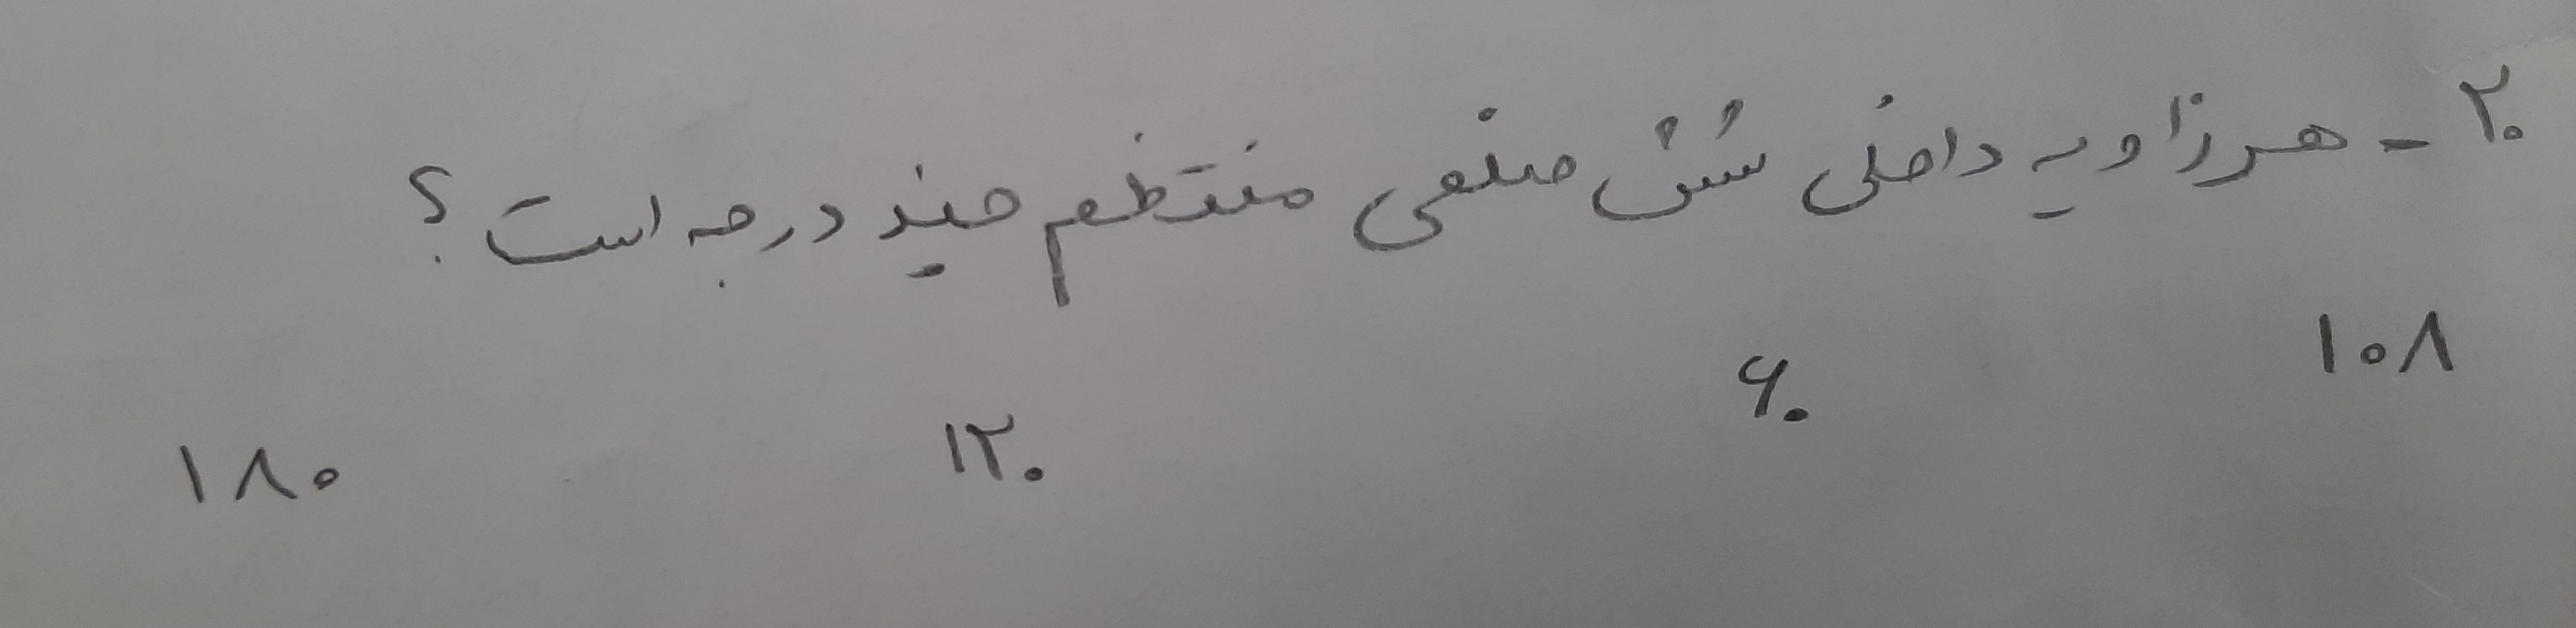 ۲۰- هر زاویه داخلی شش ضلعی منتظم چند درجه است؟
۱۰۸ ۶۰ ۱۲۰ ۱۸۰